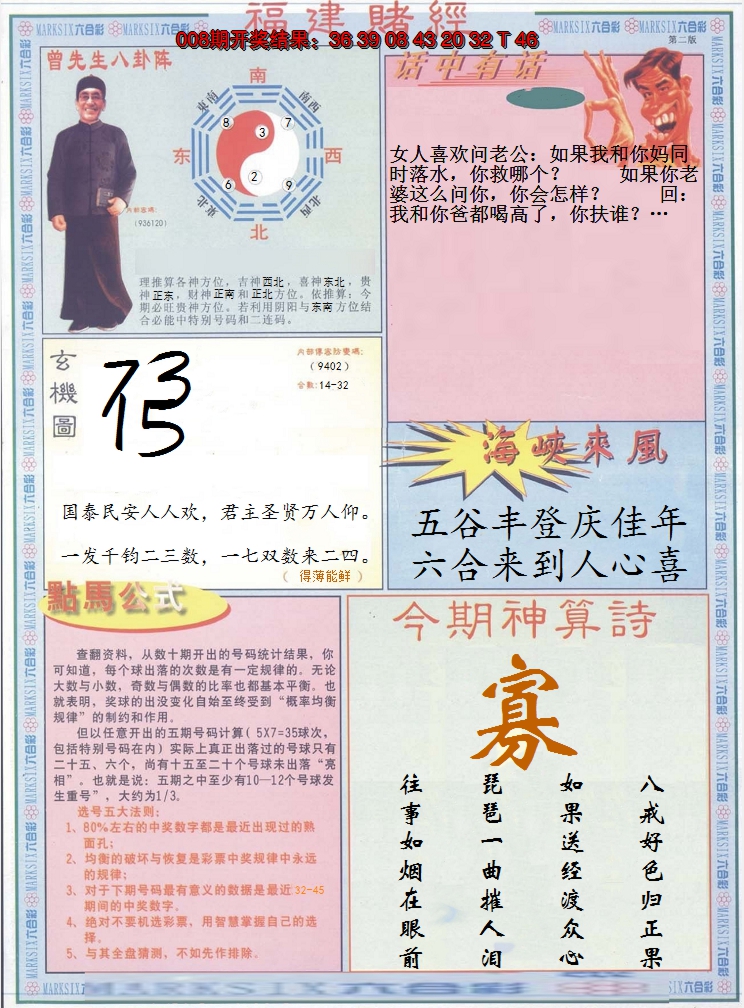 福建賭經
008期开奖结果：36 39 08 43 20 32 T 46
MARKSIX六合彩
第二版
曾先生八卦阵
南
东南
西南
8
3
7
东
西
6
2
9
东北
西北
北
内部密碼：
（936120）
理推算各神方位，吉神西北，喜神东北，贵
神正东，财神正南和正北方位。依推算：今
期必旺贵神方位。若利用阴阳与东南方位结
合必能中特别号码和二连码。
话中有话
女人喜欢问老公：如果我和你妈同
时落水，你救哪个？ 如果你老
婆这么问你，你会怎样？ 回：
我和你爸都喝高了，你扶谁？…
玄機圖
内部傳密防變碼：
（9402）
合数：14-32
国泰民安人人欢，君主圣贤万人仰。
一发千钧二三数，一七双数来二四。
（ 得薄能鲜 ）
海峽來風
五谷丰登庆佳年
六合来到人心喜
點馬公式
查翻资料，从数十期开出的号码统计结果，你
可知道，每个球出落的次数是有一定规律的。无论
大数与小数，奇数与偶数的比率也都基本平衡。也
就表明，奖球的出没变化自始至终受到“概率均衡
规律”的制约和作用。
但以任意开出的五期号码计算（5X7=35球次，
包括特别号码在内）实际上真正出落过的号球只有
二十五、六个，尚有十五至二十个号球未出落“亮
相”。也就是说：五期之中至少有10—12个号球发
生重号”，大约为1/3。
选号五大法则：
1、80%左右的中奖数字都是最近出现过的熟
面孔；
2、均衡的破坏与恢复是彩票中奖规律中永远
的规律；
3、对于下期号码最有意义的数据是最近32-45
期间的中奖数字。
4、绝对不要机选彩票，用智慧掌握自己的选
择。
5、与其全盘猜测，不如先作排除。
今期神算詩
寡
八戒好色归正果
如果送经渡众心
琵琶一曲摧人泪
往事如烟在眼前